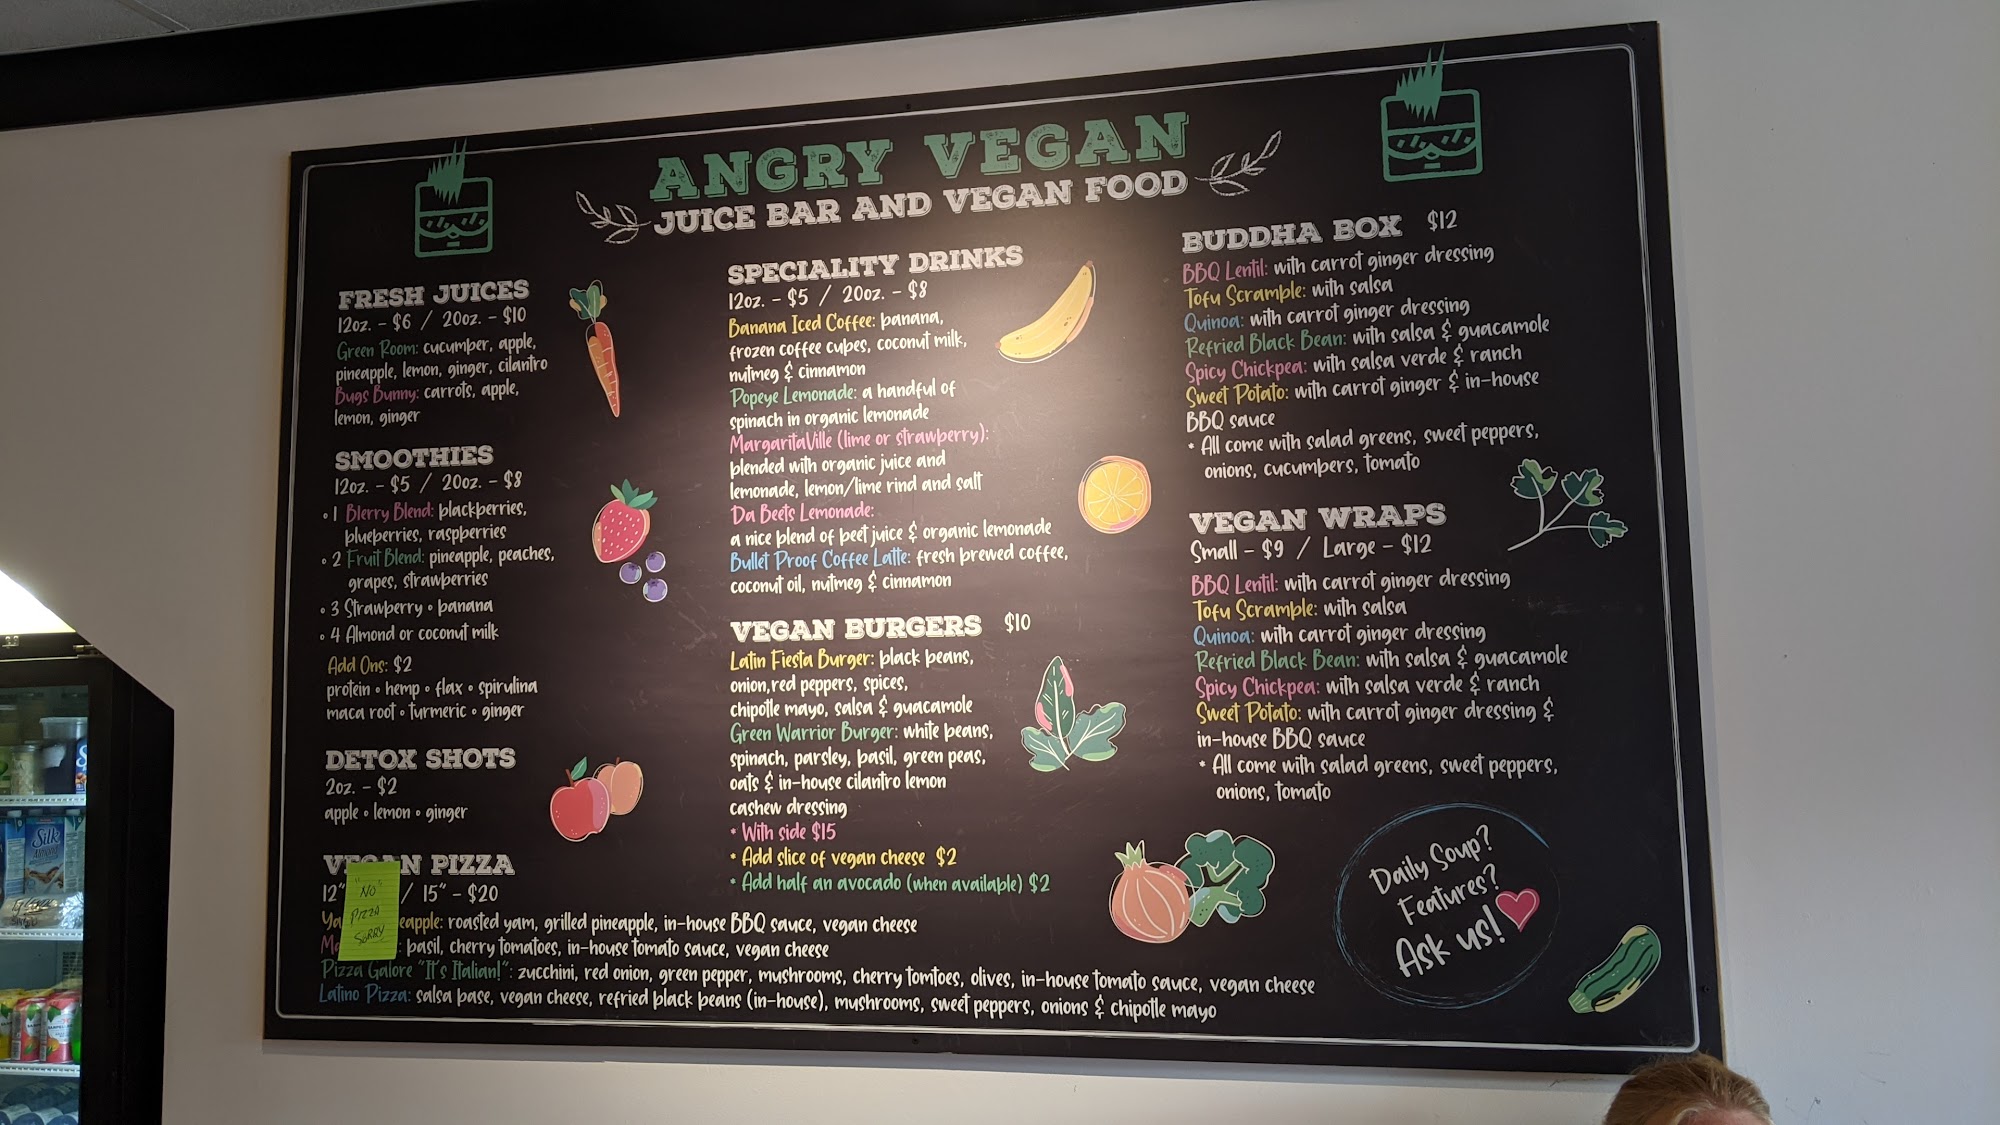 ANGRY VEGAN
JUICE BAR AND VEGAN FOOD
FRESH JUICES
12oz. - $6 / 20oz. - $10
Green Room: cucumber, apple,
pineapple, lemon, ginger, cilantro
Bugs Bunny: carrots, apple,
lemon, ginger
SMOOTHIES
12oz. - $5 / 20oz. - $8
• 1 Blerry Blend: blackberries,
blueberries, raspberries
• 2 Fruit Blend: pineapple, peaches,
grapes, strawberries
• 3 Strawberry • banana
• 4 Almond or coconut milk
Add Ons: $2
protein • hemp • flax • spirulina
maca root • turmeric • ginger
DETOX SHOTS
2oz. - $2
apple • lemon • ginger
VEGAN PIZZA
12" / 15" - $20
Ya eapple: roasted yam, grilled pineapple, in-house BBQ sauce, vegan cheese
Ma : basil, cherry tomatoes, in-house tomato sauce, vegan cheese
Pizza Galore "It's Italian!": zucchini, red onion, green pepper, mushrooms, cherry tomtoes, olives, in-house tomato sauce, vegan cheese
Latino Pizza: salsa base, vegan cheese, refried black beans (in-house), mushrooms, sweet peppers, onions & chipotle mayo
"NO"
PIZZA
SORRY
SPECIALITY DRINKS
12oz. - $5 / 20oz. - $8
Banana Iced Coffee: banana,
frozen coffee cubes, coconut milk,
nutmeg & cinnamon
Popeye Lemonade: a handful of
spinach in organic lemonade
MargaritaVille (lime or strawberry):
blended with organic juice and
lemonade, lemon/lime rind and salt
Da Beets Lemonade:
a nice blend of beet juice & organic lemonade
Bullet Proof Coffee Latte: fresh brewed coffee,
coconut oil, nutmeg & cinnamon
VEGAN BURGERS $10
Latin Fiesta Burger: black beans,
onion,red peppers, spices,
chipotle mayo, salsa & guacamole
Green Warrior Burger: white beans,
spinach, parsley, basil, green peas,
oats & in-house cilantro lemon
cashew dressing
* With side $15
* Add slice of vegan cheese $2
* Add half an avocado (when available) $2
BUDDHA BOX $12
BBQ Lentil: with carrot ginger dressing
Tofu Scramble: with salsa
Quinoa: with carrot ginger dressing
Refried Black Bean: with salsa & guacamole
Spicy Chickpea: with salsa verde & ranch
Sweet Potato: with carrot ginger & in-house
BBQ sauce
* All come with salad greens, sweet peppers,
onions, cucumbers, tomato
VEGAN WRAPS
Small - $9 / Large - $12
BBQ Lentil: with carrot ginger dressing
Tofu Scramble: with salsa
Quinoa: with carrot ginger dressing
Refried Black Bean: with salsa & guacamole
Spicy Chickpea: with salsa verde & ranch
Sweet Potato: with carrot ginger dressing &
in-house BBQ sauce
* All come with salad greens, sweet peppers,
onions, tomato
Daily Soup?
Features?
Ask us!
Silk